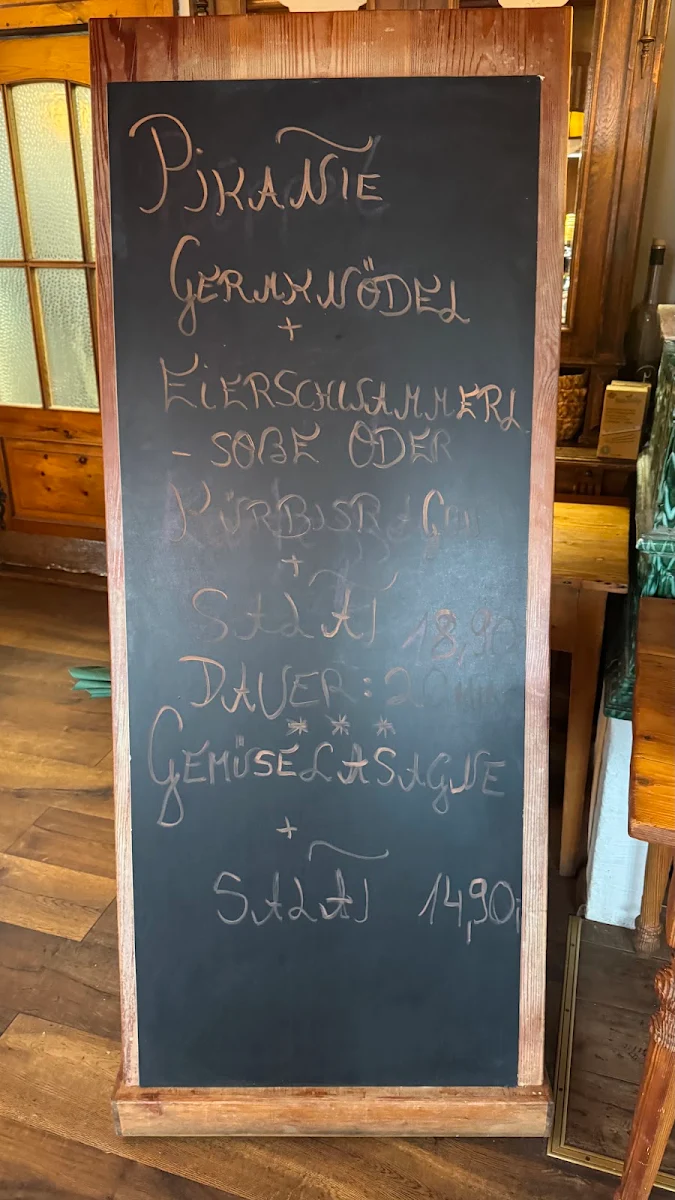 PIKANTE
GERMKNÖDEL
+
EIERSCHWAMMERL
- SOßE ODER
+
SALAT 18,90
DAUER: 20 MIN
***
GEMÜSELASAGNE
+
SALAT 14,90